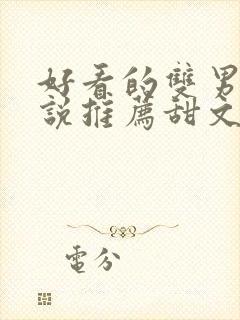 好看的雙男
說推薦甜文
電分